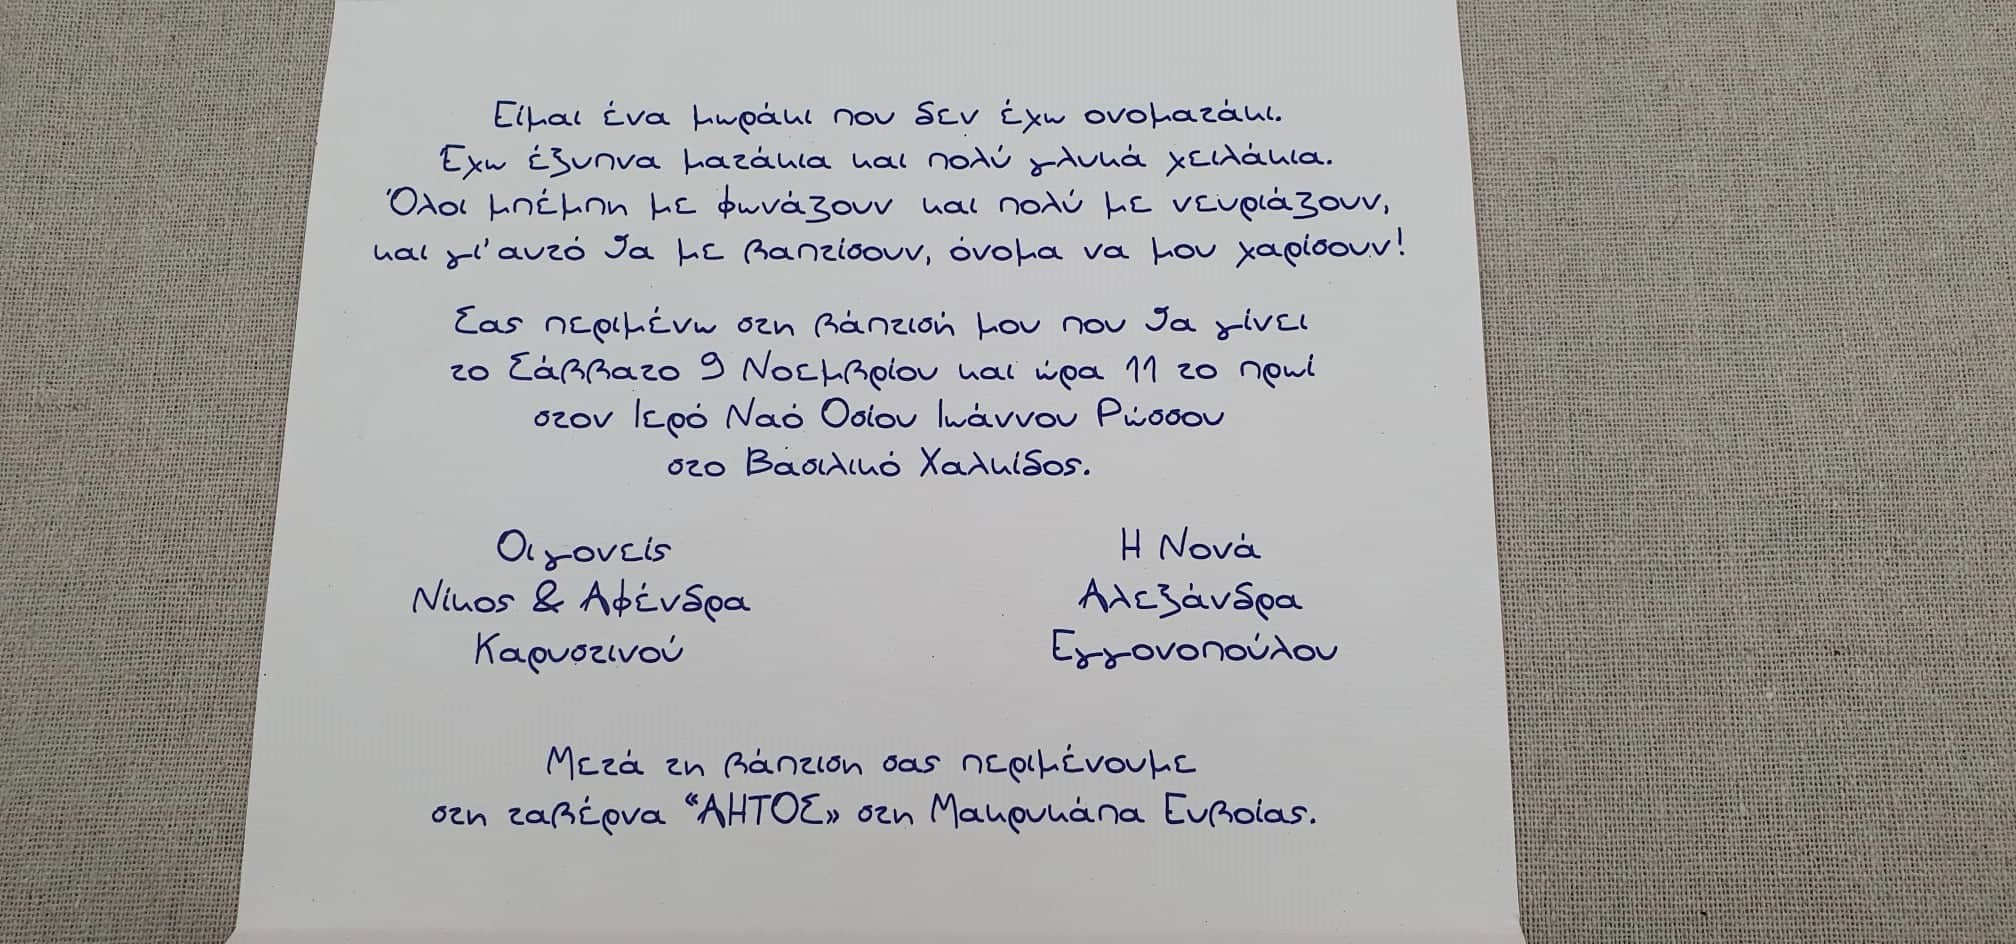 Είμαι ένα μωράκι που δεν έχω ονοματάκι.
Έχω έξυπνα ματάκια και πολύ γλυκά χειλάκια.
Όλοι μπέμπη με φωνάζουν και πολύ με νευριάζουν,
και γι'αυτό θα με βαπτίσουν, όνομα να μου χαρίσουν!
Σας περιμένω στη βάπτισή μου που θα γίνει
το Σάββατο 9 Νοεμβρίου και ώρα 11 το πρωί
στον Ιερό Ναό Οσίου Ιωάννου Ρώσσου
στο Βασιλικό Χαλκίδος.
Οι γονείς
Νίκος & Αφένδρα
Καρυστινού
Η Νονά
Αλεξάνδρα
Εγγονοπούλου
Μετά τη βάπτιση σας περιμένουμε
στη ταβέρνα “ΑΗΤΟΣ» στη Μακρυκάπα Ευβοίας.